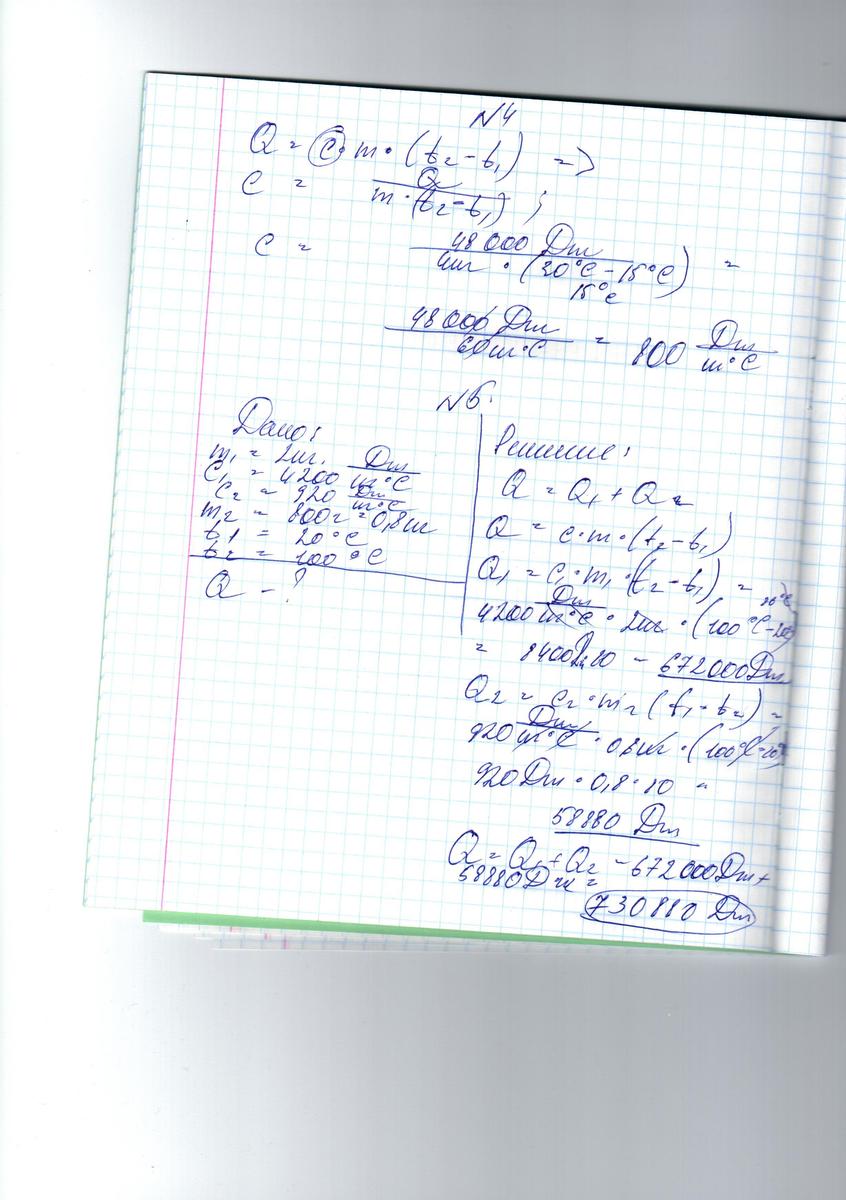 N4
Q = c · m · (t₂ - t₁) =>
c = Q / m · (t₂ - t₁) ;
c = 48000 Дж / 4кг · (30°C - 15°C) =
15°C
48000 Дж / 60 кг°C = 800 Дж / кг°C
N6.
Дано:
m₁ = 2кг.
C₁ = 4200 Дж / кг°C
C₂ = 920 Дж / кг°C
m₂ = 800г = 0,8кг
t₁ = 20°C
t₂ = 100°C
Q - ?
Решение:
Q = Q₁ + Q₂
Q = c · m · (t₂ - t₁)
Q₁ = C₁ · m₁ · (t₂ - t₁) =
80°C
4200 Дж / кг°C · 2кг · (100°C - 20°)
= 8400Дж·80 = 672000Дж
Q₂ = C₂ · m₂ (t₁ - t₂) =
920 Дж / кг°C · 0,8кг · (100°C - 20°)
920 Дж · 0,8 · 80 =
58880 Дж
Q = Q₁ + Q₂ = 672000Дж +
58880Дж =
730880 Дж